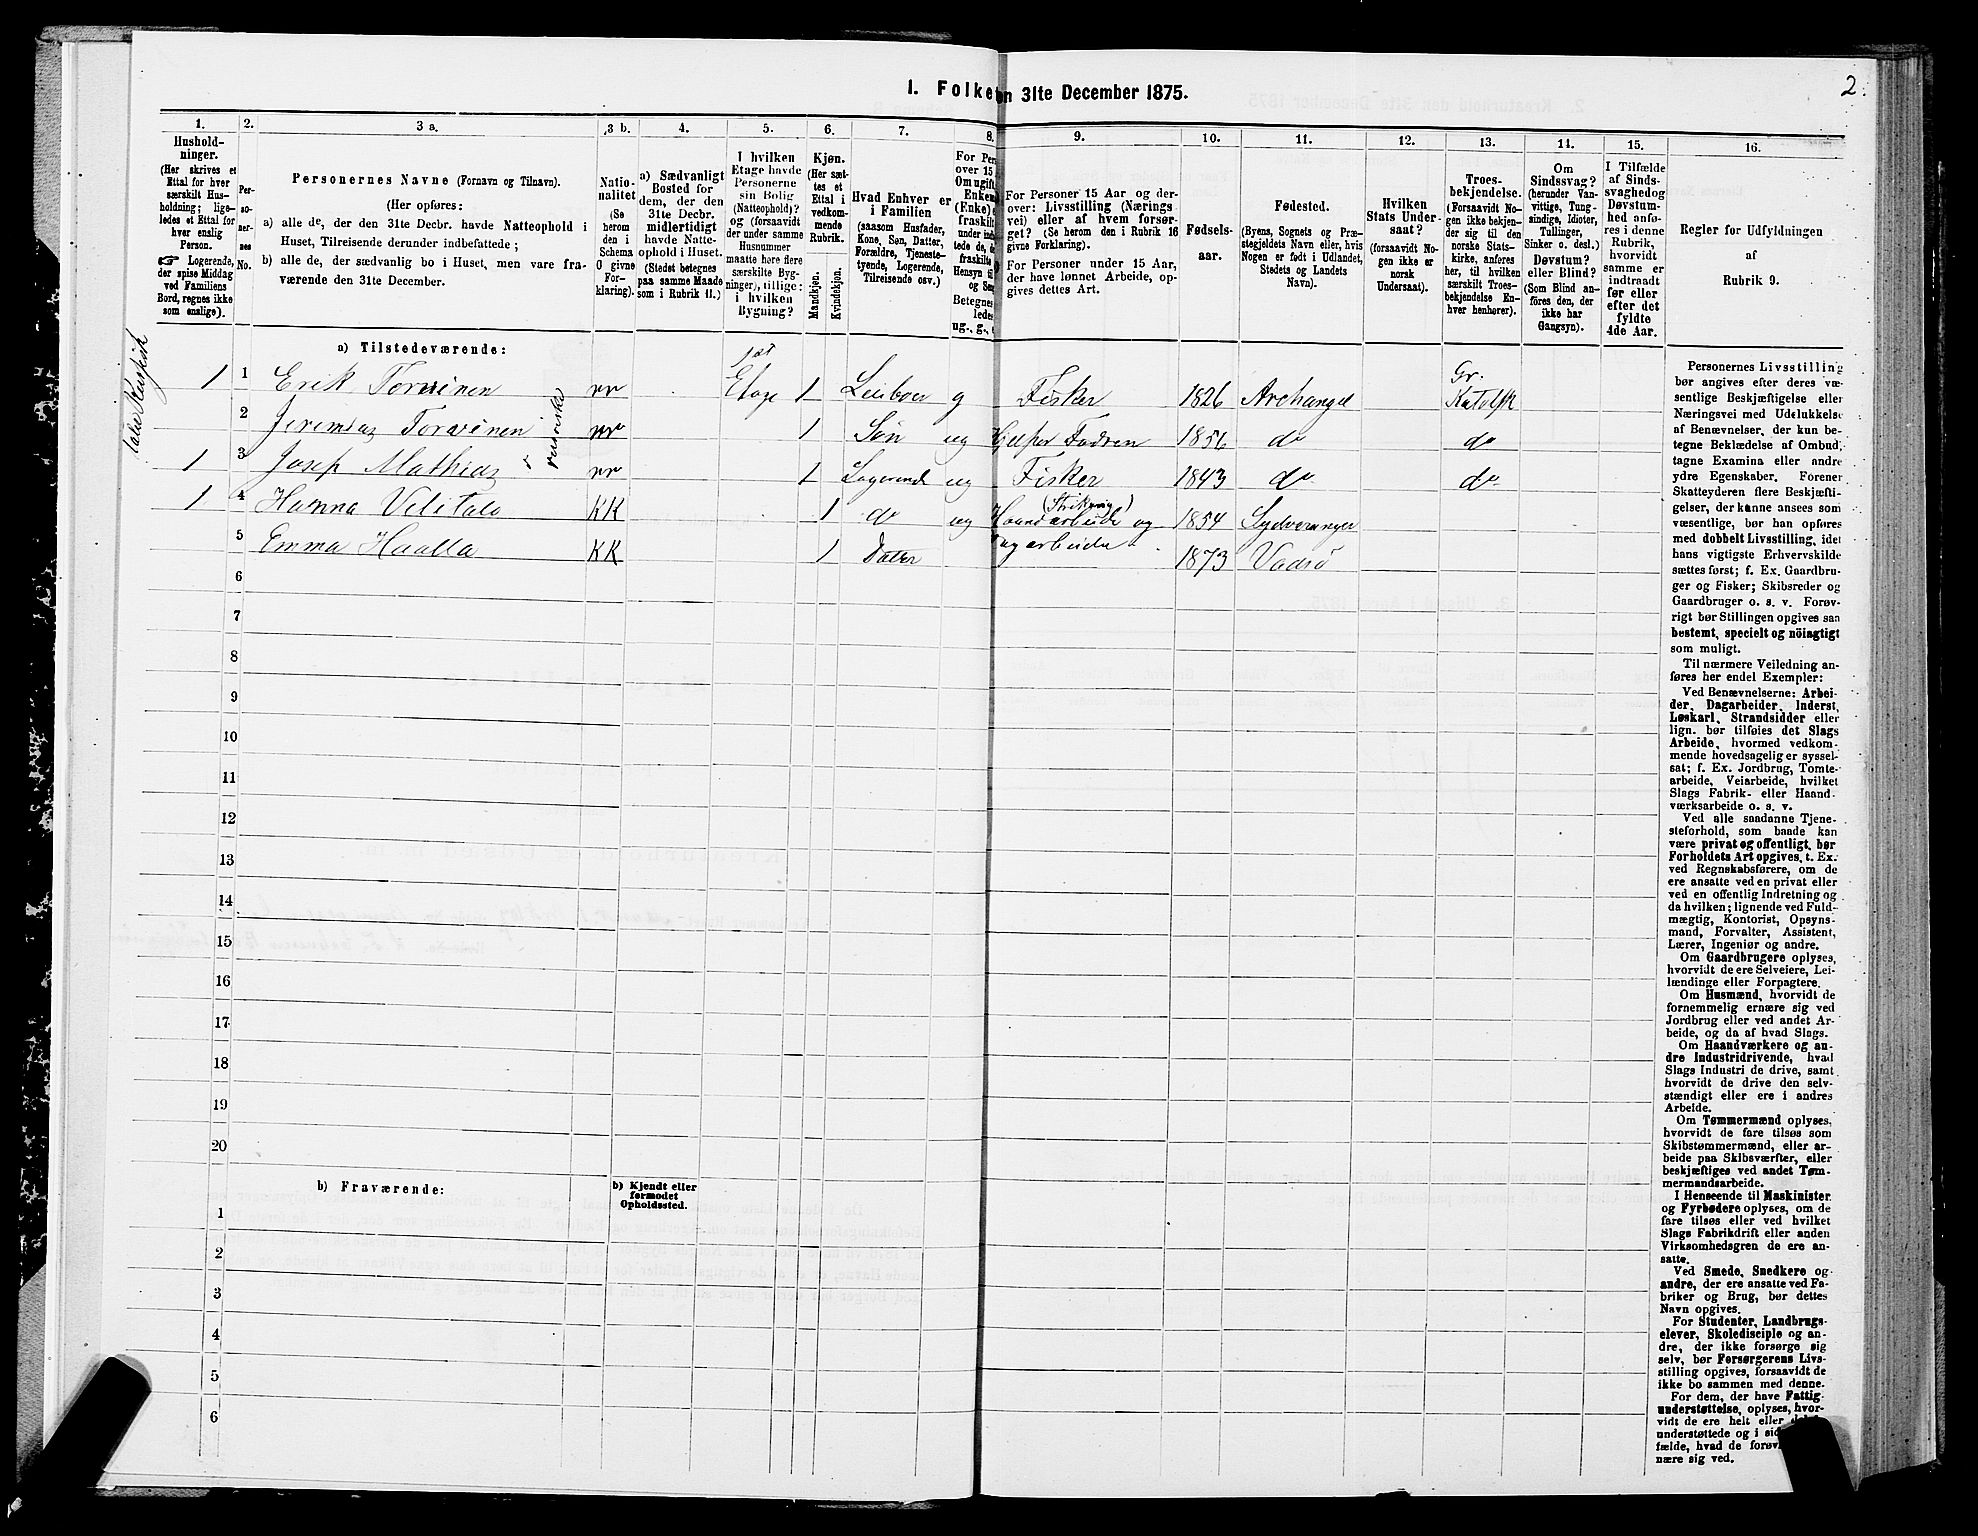 2
1. Folke en 31te December 1875.
1. 2. 3 a. 3 b. 4. 5. 6. 7. 8. 9. 10. 11. 12. 13. 14. 15. 16.
Hushold-
ninger.
(Her skrives et
Ettal for hver
særskilt Hus-
holdning; lige-
ledes et Ettal for
hver enslig
Person.
☞ Logerende,
der spise Middag
ved Familiens
Bord, regnes ikke
som enslige).
Per-
so-
ner-
nes
No.
Personernes Navne (Fornavn og Tilnavn).
(Her opføres:
a) alle de, der den 31te Decbr. havde Natteophold i
Huset, Tilreisende derunder indbefattede;
b) alle de, der sædvanlig bo i Huset, men vare fra-
værende den 31te December.
Natio-
nalitet
(Se
herom
den i
Schema
0 givne
For-
klaring).
a) Sædvanligt
Bosted for
dem, der den
31te Decbr.
midlertidigt
havde Natte-
ophold i Huset.
(Stedet betegnes
paa samme Maade
som i Rubrik 11.)
I hvilken
Etage havde
Personerne
sin Bolig
(Natteophold)?
og (forsaavidt
der under samme
Husnummer
maatte høre flere
særskilte Byg-
ninger), tillige:
i hvilken
Bygning?
Kjøn.
(Her sæt-
tes et
Ettal i
vedkom-
mende
Rubrik.
Mandkjøn.
Kvindekjøn.
Hvad Enhver er
i Familien
(saasom Husfader,
Kone, Søn, Datter,
Forældre, Tjeneste-
tyende, Logerende,
Tilreisende osv.)
For Per
over 15
Om ugift
Enkem
(Enke) e
fraskilt
under ind
tede de, d
fraskilt
Hensyn til
og Se
Betegnes
ledes
ug., g., e
For Personer 15 Aar og der-
over: Livsstilling (Nærings
vei) eller af hvem forsør-
get? (Se herom den i Rubrik 16
givne Forklaring).
For Personer under 15 Aar,
der have lønnet Arbeide, op-
gives dettes Art.
Fødsels-
aar.
Fødested.
(Byens, Sognets og Præ-
stegjeldets Navn eller, hvis
Nogen er født i Udlandet,
Stedets og Landets
Navn).
Hvilken
Stats Under-
saat?
(forsaavidt No-
gen ikke er
norsk
Undersaat).
Troes-
bekjendelse.
(Forsaavidt No-
gen ikke bekjen-
der sig til den
norske Stats-
kirke, anføres
her, til hvilken
særskilt Troes-
bekjendelse En-
hver henhører).
Om
Sindssvag?
(herunder Van-
vittige, Tung-
sindige, Idioter,
Tullinger,
Sinker o. desl.)
Døvstum?
eller Blind?
(Som Blind an-
føres den, der
ikke har
Gangsyn).
I Tilfælde
af Sinds-
svaghed og
Døvstum-
hed anfø-
res i denne
Rubrik,
hvorvidt
samme er
indtraadt
før eller
efter det
fyldte
4de Aar.
Regler for Udfyldningen
af
Rubrik 9.
a) Tilstedeværende:
1 1 Erik Torvinen rr 1st Etage 1 g Fisker 1826 Archangel Gr. Katolsk
2 Jeremias Torvinen rr 1 Søn ug Hjelper Fadren 1856 do do
1 3 Josep Mathias rr 1 Logerende ug Fisker 1843 do do
1 4 Hanna Velitalo KK 1 do ug Haandarbeide og (Strikning) 1854 Sydveranger
5 Emma Haalla KK 1 Dater Dagarbeide 1873 Vadsø
6
7
8
9
10
11
12
13
14
15
16
17
18
19
20
b) Fraværende:
b) Kjendt eller
formodet
Opholdssted.
1
2
3
4
5
6
Personernes Livsstilling
bør angives efter deres væ-
sentlige Beskjæftigelse eller
Næringsvei med Udelukkelse
af Benævnelser, der kun be-
tegne Beklædelse af Ombud,
tagne Examina eller andre
ydre Egenskaber. Forener
Skatteyderen flere Beskjæfti-
gelser, der kunne ansees som
væsentlige, bør han opføres
med dobbelt Livsstilling, idet
hans vigtigste Erhvervskilde
sættes først; f. Ex. Gaardbru-
ger og Fisker; Skibsreder og
Gaardbruger o. s. v. Forøv-
rigt bør Stillingen opgives saa
bestemt, specielt og nöiagtigt
som muligt.
Til nærmere Veiledning an-
føres her endel Exempler:
Ved Benævnelserne: Arbei-
der, Dagarbeider, Inderst,
Løskarl, Strandsidder eller
lign. bør tilføies det Slags
Arbeide, hvormed vedkom-
mende hovedsagelig er syssel-
sat; f. Ex. Jordbrug, Tomte-
arbeide, Veiarbeide, hvilket
Slags Fabrik- eller Haand-
værksarbeide o. s. v.
Ved alle saadanne Tjene-
steforhold, som baade kan
være privat og offentligt, bør
Forholdets Art opgives, t. Ex.
ved Regnskabsførere, om de
ere ansatte ved en privat eller
ved en offentlig Indretning og
da hvilken; lignende ved Fuld-
mægtig, Kontorist, Opsyns-
mand, Forvalter, Assistent,
Lærer, Ingeniør og andre.
Om Gaardbrugere oplyses,
hvorvidt de ere Selveiere, Lei-
lændinge eller Forpagtere.
Om Husmænd, hvorvidt de
fornemmelig ernære sig ved
Jordbrug eller ved andet Ar-
beide, og da af hvad Slags.
Om Haandværkere og an-
dre Industridrivende, hvad
Slags Industri de drive, samt
hvorvidt de drive den selv-
stændigt eller ere i andres
Arbeide.
Om Tømmermænd oplyses,
hvorvidt de fare tilsøs som
Skibstømmermænd, eller ar-
beide paa Skibsværfter, eller
beskjæftiges ved andet Tøm-
mermandsarbeide.
I Henseende til Maskinister
og Fyrbødere oplyses, om de
fare tilsøs eller ved hvilket
Slags Fabrikdrift eller anden
Virksomhedsgren de ere an-
satte.
Ved Smede, Snedkere og
andre, der ere ansatte ved Fa-
briker og Brug, bør dettes
Navn opgives.
For Studenter, Landbrugs-
elever, Skoledisciple og an-
dre, der ikke forsørge sig
selv, bør Forsørgerens Livs-
stilling opgives, forsaavidt de
ikke bo sammen med denne.
For dem, der have Fattig-
understøttelse, oplyses, hvor-
vidt de ere helt eller
understøttede og i
fælde, hvad de
nære sig ved.